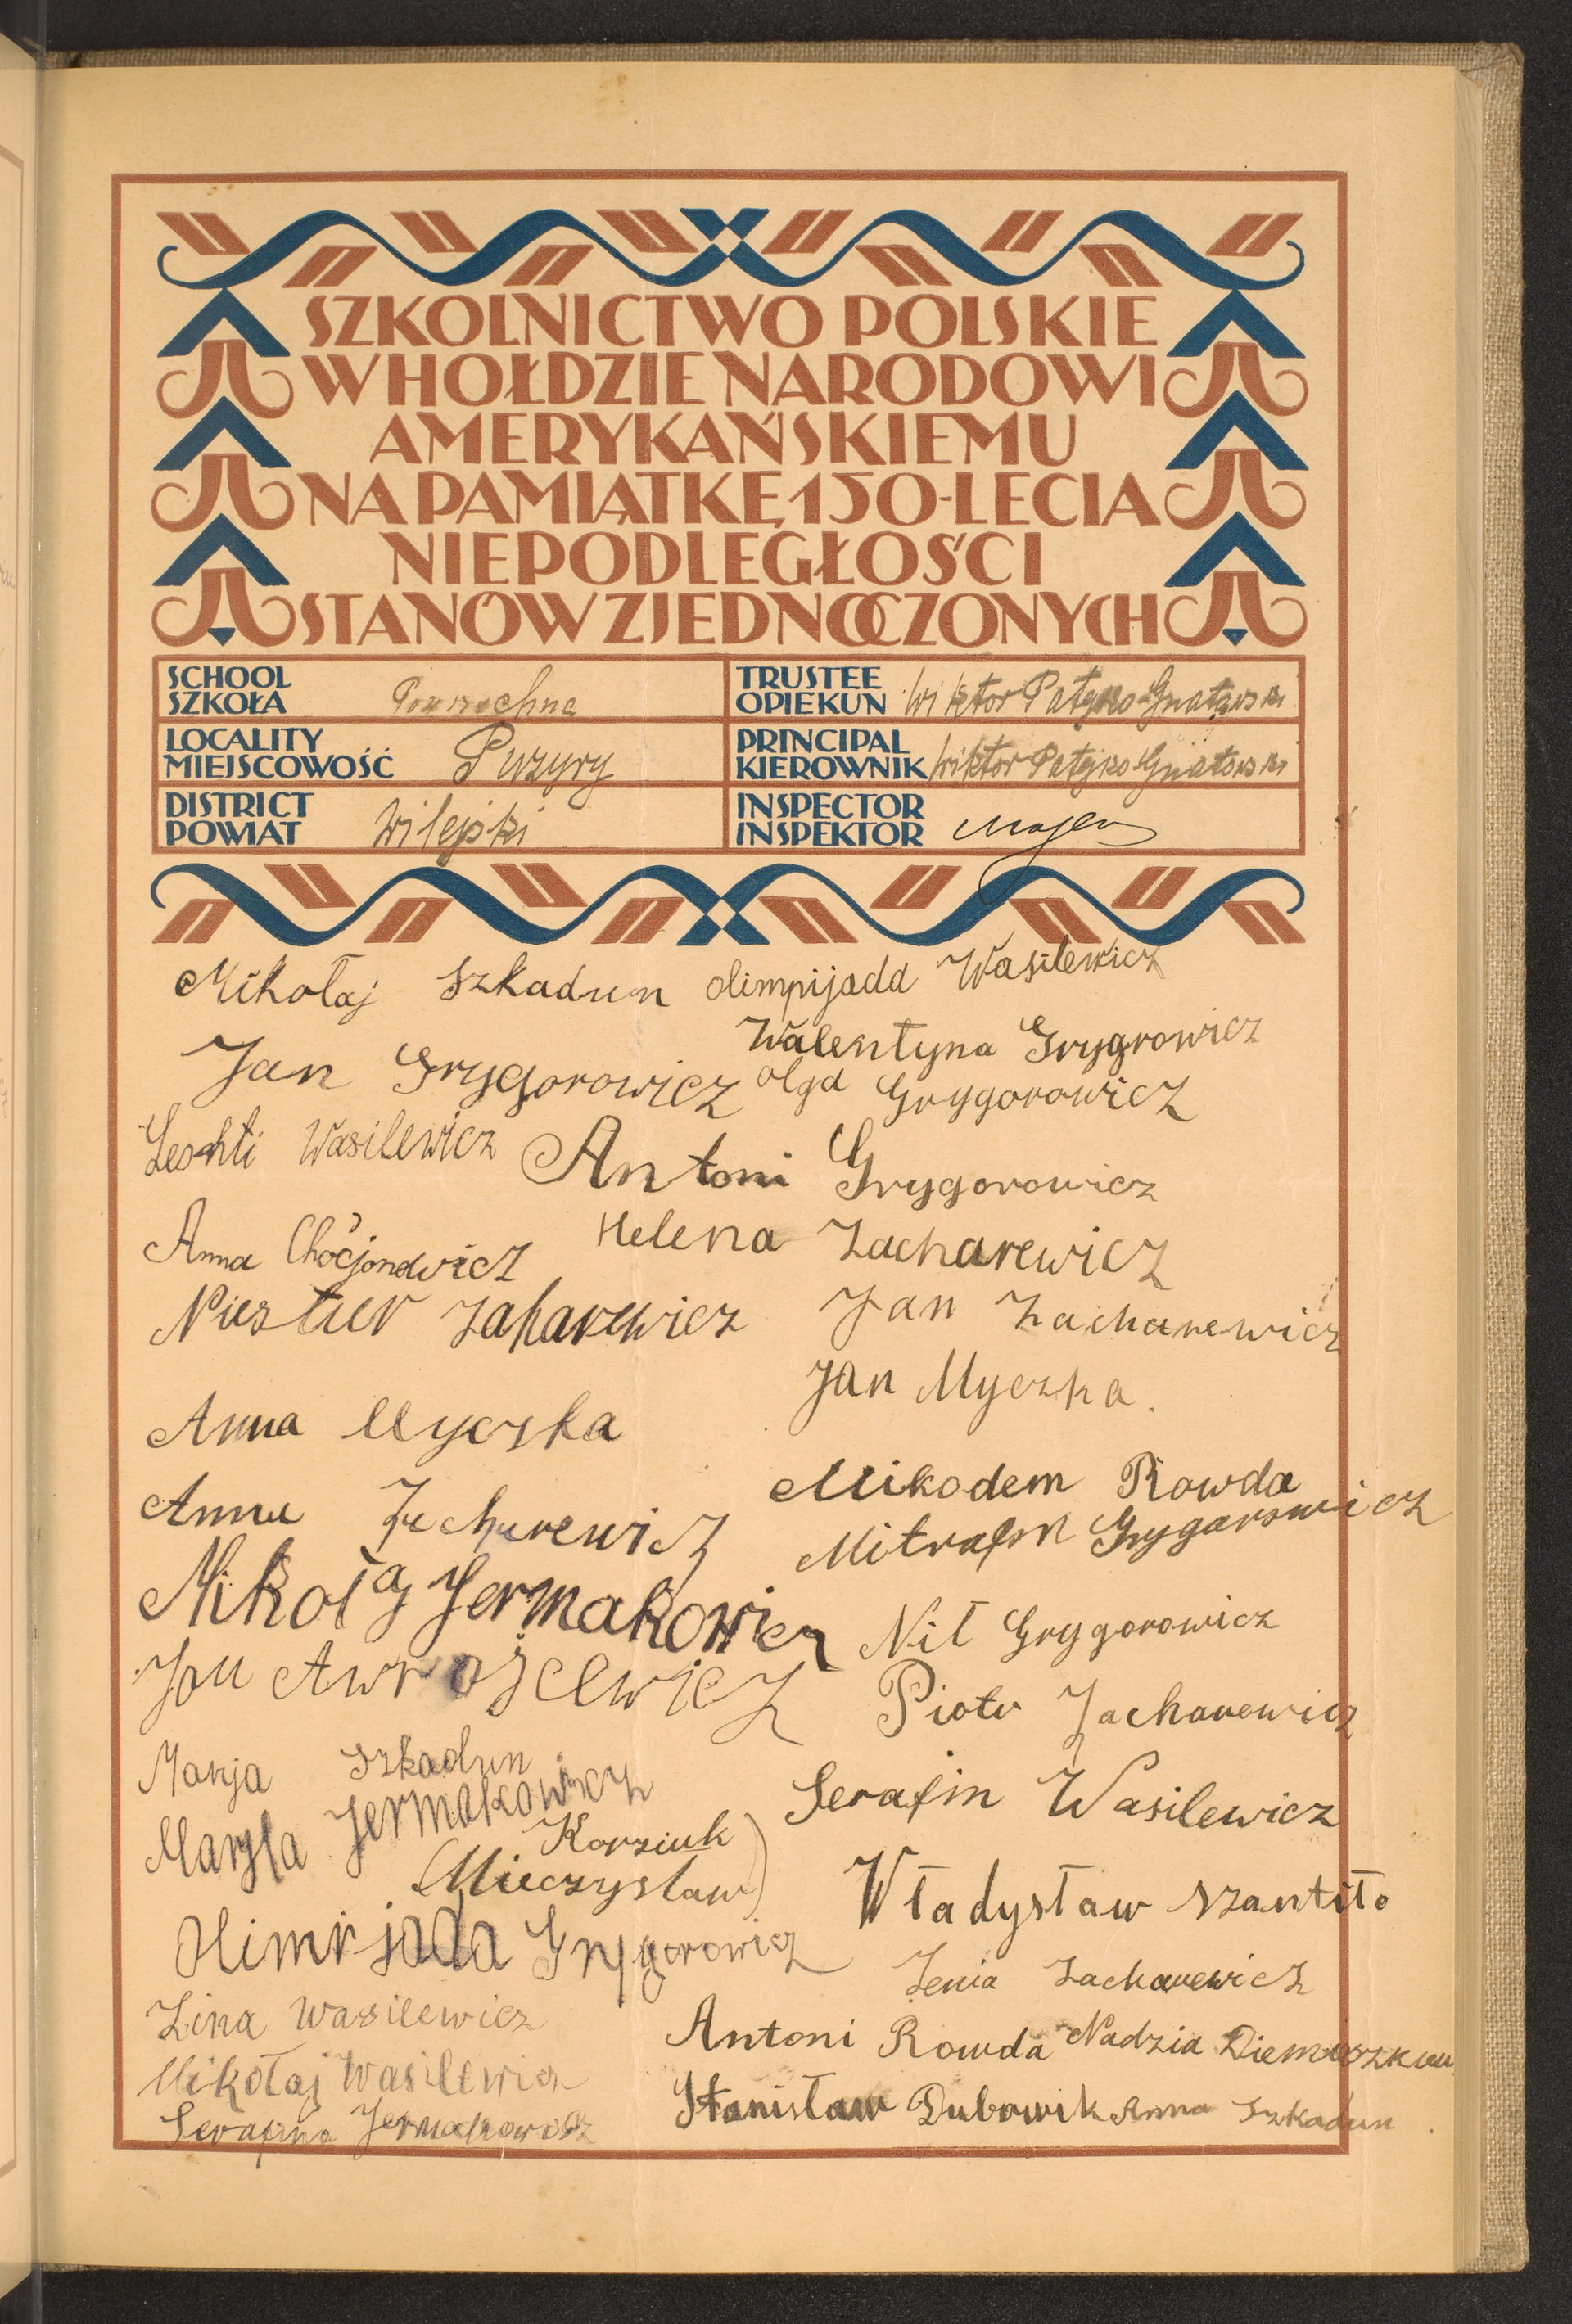 SZKOLNICTWO POLSKIE
W HOŁDZIE NARODOWI
AMERYKAŃSKIEMU
NA PAMIĄTKĘ 150-LECIA
NIEPODLEGŁOŚCI
STANÓW ZJEDNOCZONYCH
SCHOOL
SZKOŁA Powszechna
TRUSTEE
OPIEKUN Wiktor Patyko-Gnatowski
LOCALITY
MIEJSCOWOŚĆ Puzyry
PRINCIPAL
KIEROWNIK Wiktor Patyko Gnatowski
DISTRICT
POWIAT Wilejski
INSPECTOR
INSPEKTOR
Mikołaj Szkadun
olimpijada Wasilewicz
Walentyna Grygrowicz
Jan Grygorowicz
olga Grygorowicz
Wasilewicz
Antoni Grygorowicz
Anna
Helena Zacharewicz
Niestier Zaharewicz
Jan Zacharewicz
Jan Myczka.
Anna Myczka
Mikodem Rowda
Anna Zacharewicz
Mitrafon Grygarowicz
Mikołaj Jermakowicz
Nił Grygorowicz
Jan
Piotr Zacharewicz
Marja Szkadun
Maryla Jermakowicz
Serafin Wasilewicz
(Korziuk
Mieczysław)
Władysław Szantiło
Olimpijada Grygorowicz
Zenia Zacharewicz
Zina Wasilewicz
Antoni Rowda
Nadzia
Mikołaj Wasilewicz
Stanisław Dubowik
Anna Szkadun.
Serafina Jermakowicz